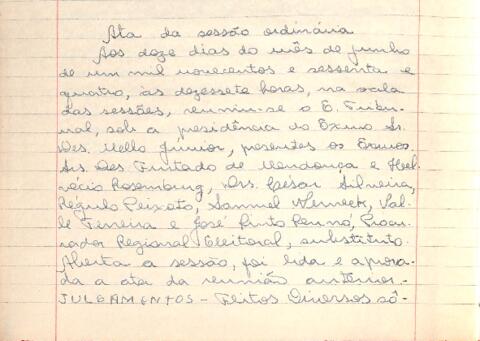 Ata da sessão ordinária
Aos doze dias do mês de junho
de um mil novecentos e sessenta e
quatro, às dezessete horas, na sala
das sessões, reuniu-se o E. Tribu-
nal, sob a presidência do Exmo Sr.
Des. Mello Júnior, presentes os Exmos.
Srs. Des. Furtado de Mendonça e Hel-
vécio Rosenburg, Drs. César Silveira,
Régulo Peixoto, Samuel Werneck, Val-
le Ferreira e José Pinto Renó, Procu-
rador Regional Eleitoral, substituto.
Aberta a sessão, foi lida e aprova-
da a ata da reunião anterior.
JULGAMENTOS - Feitos Diversos sô-